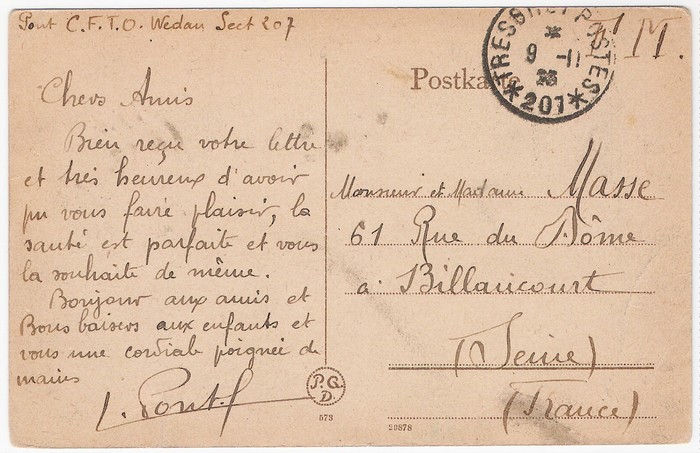 Pont C.F.T.O. Wedau Sect 207
F.M.
TRESOR ET POSTES
*
9 -11
23
*207*
Postkarte
Chers Amis
Bien reçu votre lettre
et très heureux d'avoir
pu vous faire plaisir, la
santé est parfaite et vous
la souhaite de même.
Bonjour aux amis et
Bons baisers aux enfants et
vous une cordiale poignée de
mains
L. Pont
Monsieur et Madame Masse
61 Rue du Dôme
à Billancourt
(Seine)
(France)
P.G.
D.
573
20878